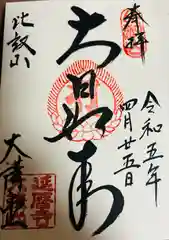 奉拝
令和五年
四月廿五日
大日如来
比叡山
大講堂
延暦寺